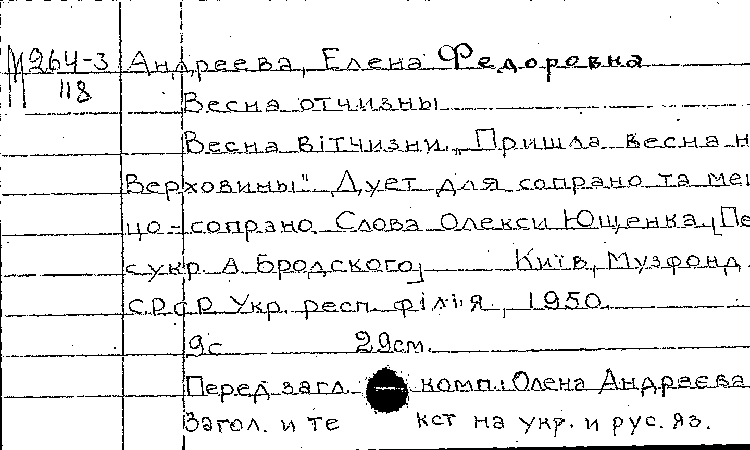 М 264-3 Андреева, Елена Федоровна
118
Весна отчизны
Весна вітчизни. „Пришла весна н
Верховины". Дует для сопрано та ме
цо-сопрано. Слова Олекси Ющенка. [Пе
с укр. А. Бродского] Київ, Музфонд
СРСР Укр. респ. філія, 1950.
9с 29см.
Перед загл. комп.: Олена Андреева
Загол. и те кст на укр. и рус. яз.